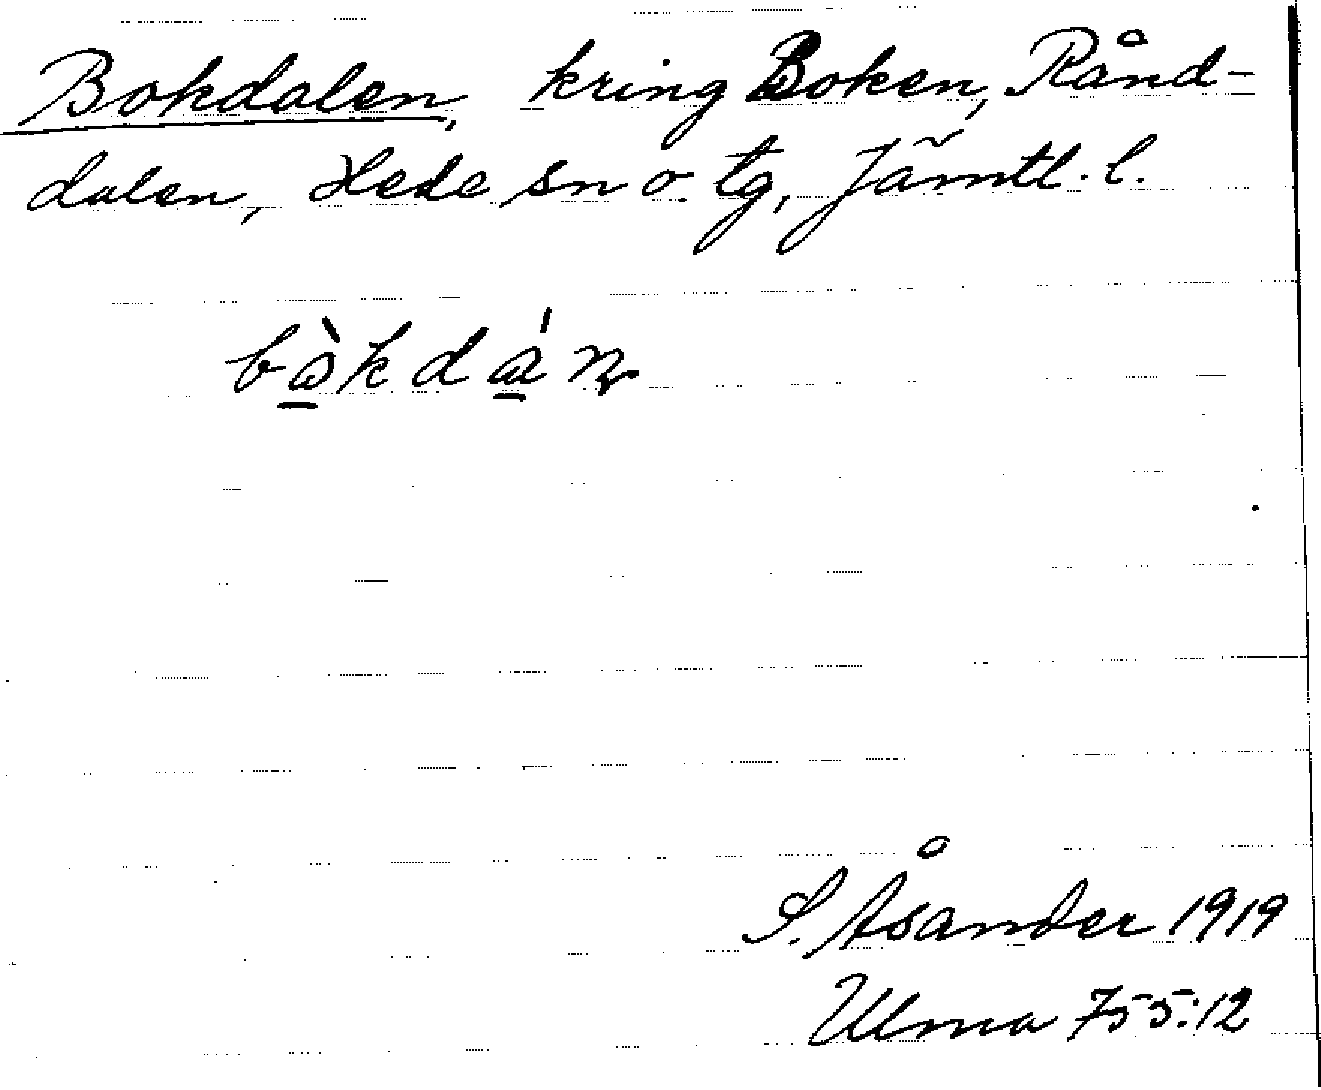 Bokdalen, kring Boken, Rånd-
dalen, Hede sn o. tg, Jämtl. l.
bὼkdán
S. Åsander 1919
Ulma 755:12